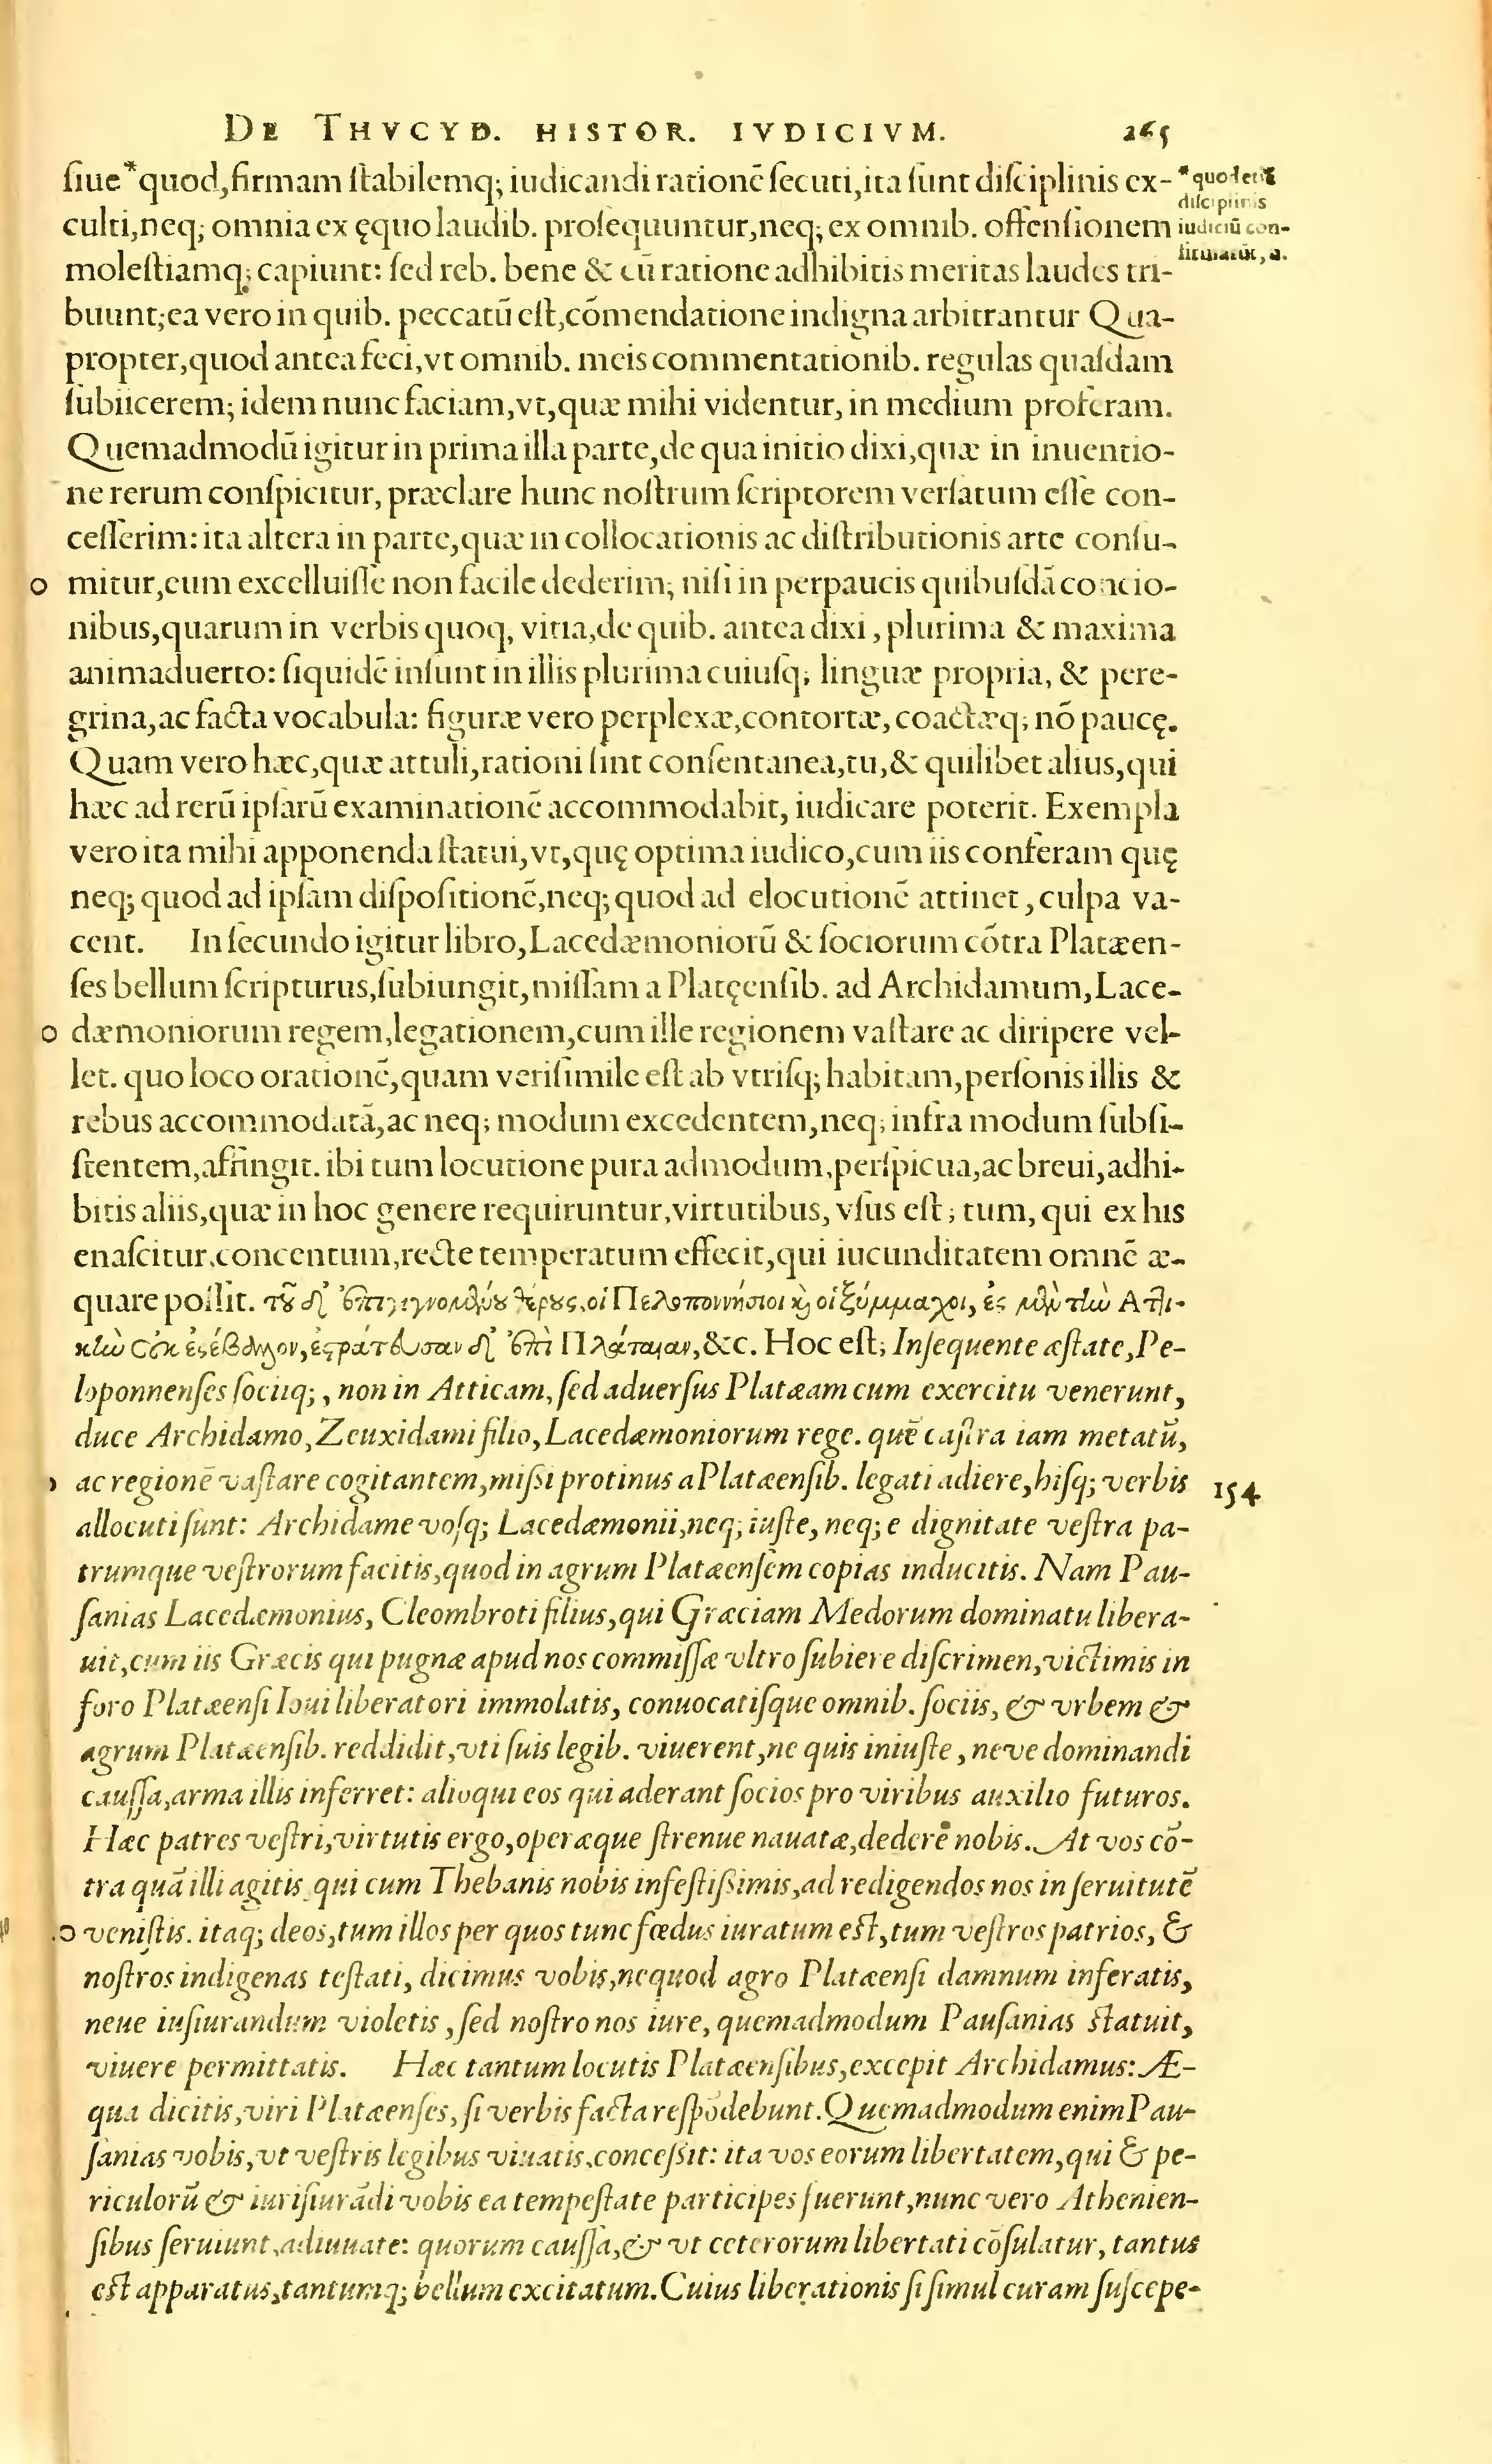 DE THVCYD. HISTOR. IVDICIVM. 265
siue *quod, firmam stabilemq; iudicandi rationē secuti, ita sunt disciplinis ex-
culti, neq; omnia ex ęquo laudib. prosequuntur, neq; ex omnib. offensionem
molestiamq; capiunt: sed reb. bene & cū ratione adhibitis meritas laudes tri-
buunt; ea vero in quib. peccatū est, cōmendatione indigna arbitrantur Qua-
propter, quod antea feci, vt omnib. meis commentationib. regulas quasdam
subiicerem; idem nunc faciam, vt, quæ mihi videntur, in medium proferam.
Quemadmodū igitur in prima illa parte, de qua initio dixi, quæ in inuentio-
ne rerum conspicitur, præclare hunc nostrum scriptorem versatum esse con-
cesserim: ita altera in parte, quæ in collocationis ac distributionis arte consu-
mitur, eum excelluisse non facile dederim; nisi in perpaucis quibusdā concio-
nibus, quarum in verbis quoq, vitia, de quib. antea dixi, plurima & maxima
animaduerto: siquidē insunt in illis plurima cuiusq; linguæ propria, & pere-
grina, ac facta vocabula: figuræ vero perplexæ, contortæ, coactæq; nō paucę.
Quam vero hæc, quæ attuli, rationi sint consentanea, tu, & quilibet alius, qui
hæc ad rerū ipsarū examinationē accommodabit, iudicare poterit. Exempla
vero ita mihi apponenda statui, vt, quę optima iudico, cum iis conferam quę
neq; quod ad ipsam dispositionē, neq; quod ad elocutionē attinet, culpa va-
cent. In secundo igitur libro, Lacedæmoniorū & sociorum cōtra Platæen-
ses bellum scripturus, subiungit, missam a Platęensib. ad Archidamum, Lace-
dæmoniorum regem, legationem, cum ille regionem vastare ac diripere vel-
let. quo loco orationē, quam verisimile est ab vtrisq; habitam, personis illis &
rebus accommodatā, ac neq; modum excedentem, neq; infra modum subsi-
stentem, affingit. ibi tum locutione pura admodum, perspicua, ac breui, adhi-
bitis aliis, quæ in hoc genere requiruntur, virtutibus, vsus est; tum, qui ex his
enascitur, concentum, recte temperatum effecit, qui iucunditatem omnē æ-
quare possit. τοῦ δ' ἐπιγιγνομένου θέρους, οἱ Πελοποννήσιοι καὶ οἱ ξύμμαχοι, ἐς μὲν τὴν Ἀττι-
κὴν οὐκ ἐσέβαλον, ἐστράτευσαν δ' ἐπὶ Πλάταιαν, &c. Hoc est; Insequente æstate, Pe-
loponnenses sociiq;, non in Atticam, sed aduersus Platæam cum exercitu venerunt,
duce Archidamo, Zeuxidami filio, Lacedæmoniorum rege. quē castra iam metatū,
ac regionē vastare cogitantem, missi protinus a Platæensib. legati adiere, hisq; verbis
allocuti sunt: Archidame vosq; Lacedæmonii, neq; iuste, neq; e dignitate vestra pa-
trumque vestrorum facitis, quod in agrum Platæensem copias inducitis. Nam Pau-
sanias Lacedæmonius, Cleombroti filius, qui Græciam Medorum dominatu libera-
uit, cum iis Græcis qui pugnæ apud nos commissæ vltro subiere discrimen, victimis in
foro Platæensi Ioui liberatori immolatis, conuocatisque omnib. sociis, & vrbem &
agrum Platæensib. reddidit, vti suis legib. viuerent, ne quis iniuste, neve dominandi
caussa, arma illis inferret: alioqui eos qui aderant socios pro viribus auxilio futuros.
Hæc patres vestri, virtutis ergo, operæque strenue nauatæ, dederē nobis. At vos cō-
tra quā illi agitis qui cum Thebanis nobis infestissimis, ad redigendos nos in seruitutē
venistis. itaq; deos, tum illos per quos tunc fœdus iuratum est, tum vestros patrios, &
nostros indigenas testati, dicimus vobis, nequod agro Platæensi damnum inferatis,
neue iusiurandum violetis, sed nostro nos iure, quemadmodum Pausanias statuit,
viuere permittatis. Hæc tantum locutis Platæensibus, excepit Archidamus: Æ-
qua dicitis, viri Platæenses, si verbis facta respōdebunt. Quemadmodum enim Pau-
sanias vobis, vt vestris legibus viuatis, concessit: ita vos eorum libertatem, qui & pe-
riculorū & iurisiurādi vobis ea tempestate participes fuerunt, nunc vero Athenien-
sibus seruiunt, adiuuate: quorum caussa, & vt ceterorum libertati cōsulatur, tantus
est apparatus, tantumq; bellum excitatum. Cuius liberationis si simul curam suscepe-
disciplinis
iudiciū con-
154